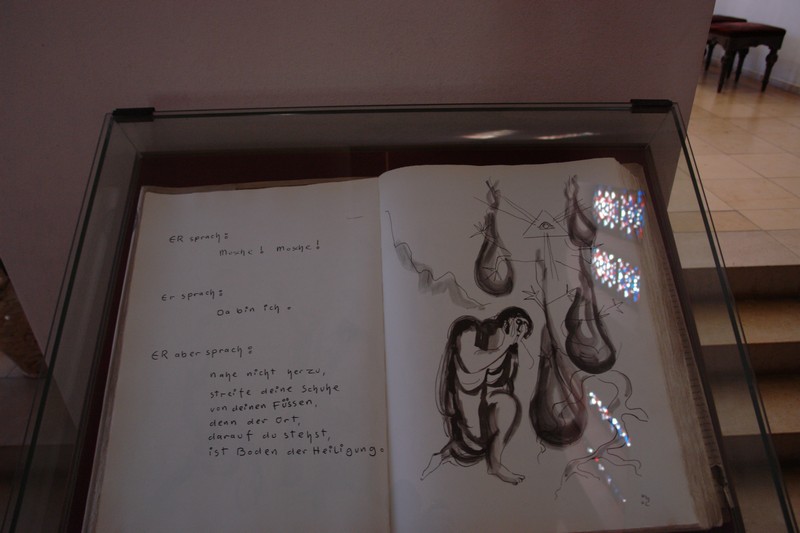 ER sprach:
Mosche! Mosche!
Er sprach:
Da bin ich.
ER aber sprach:
nahe nicht herzu,
streife deine Schuhe
von deinen Füssen,
denn der Ort,
darauf du stehst,
ist Boden der Heiligung.